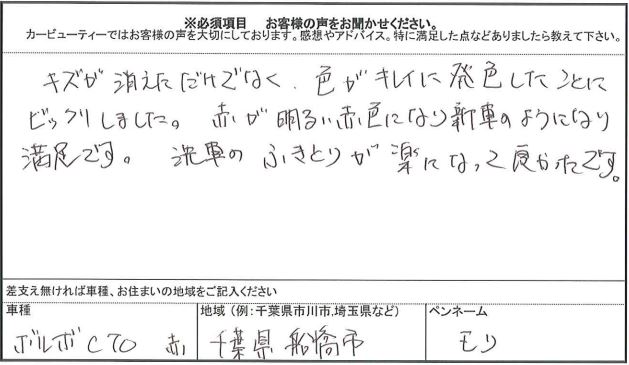 ※必須項目　お客様の声をお聞かせください。
カービューティーではお客様の声を大切にしております。感想やアドバイス。特に満足した点などありましたら教えて下さい。
キズが消えただけでなく、色がキレイに発色したことに
ビックリしました。赤が明るい赤色になり新車のようになり
満足です。洗車のふきとりが楽になって良かったです。
差支え無ければ車種、お住まいの地域をご記入ください
車種　地域（例：千葉県市川市,埼玉県など）　ペンネーム
ボルボC70 赤　千葉県船橋市　モリ